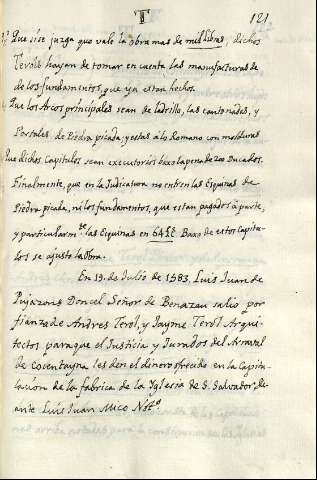 T 121
Que si se juzga que vale la obra mas de mil libras, dichos
Terols hayan de tomar en cuenta las manufacturas de
de los fundamentos, que ya estan hechos.
Que los Arcos principales sean de ladrillo, las cantonadas, y
Portales, de Piedra picada; y estas a lo Romano con molduras
Que dichos Capitulos sean executorios baxo la pena de 200 Ducados.
Finalmente, que en la Judicatura no entren las Esquinas de
Piedra picada, ni los fundamentos, que estan pagados à parte,
y particularmte. las Esquinas en 64 Baxo de estos Capitu-
los se ajustò la Obra.
En 19. de Julio de 1583. Luis Juan de
Pujazons Doncel Señor de Benazau saliò por
fianza de Andres Terol, y Jayme Terol Arqui-
tectos para que el Justicia y Jurados del Arraval
de Cocentayna, les den el dinero ofrecido en la Capitu-
lacion de la fabrica de la Yglesia de S. Salvador, de-
ante Luis Juan Mico Noto.